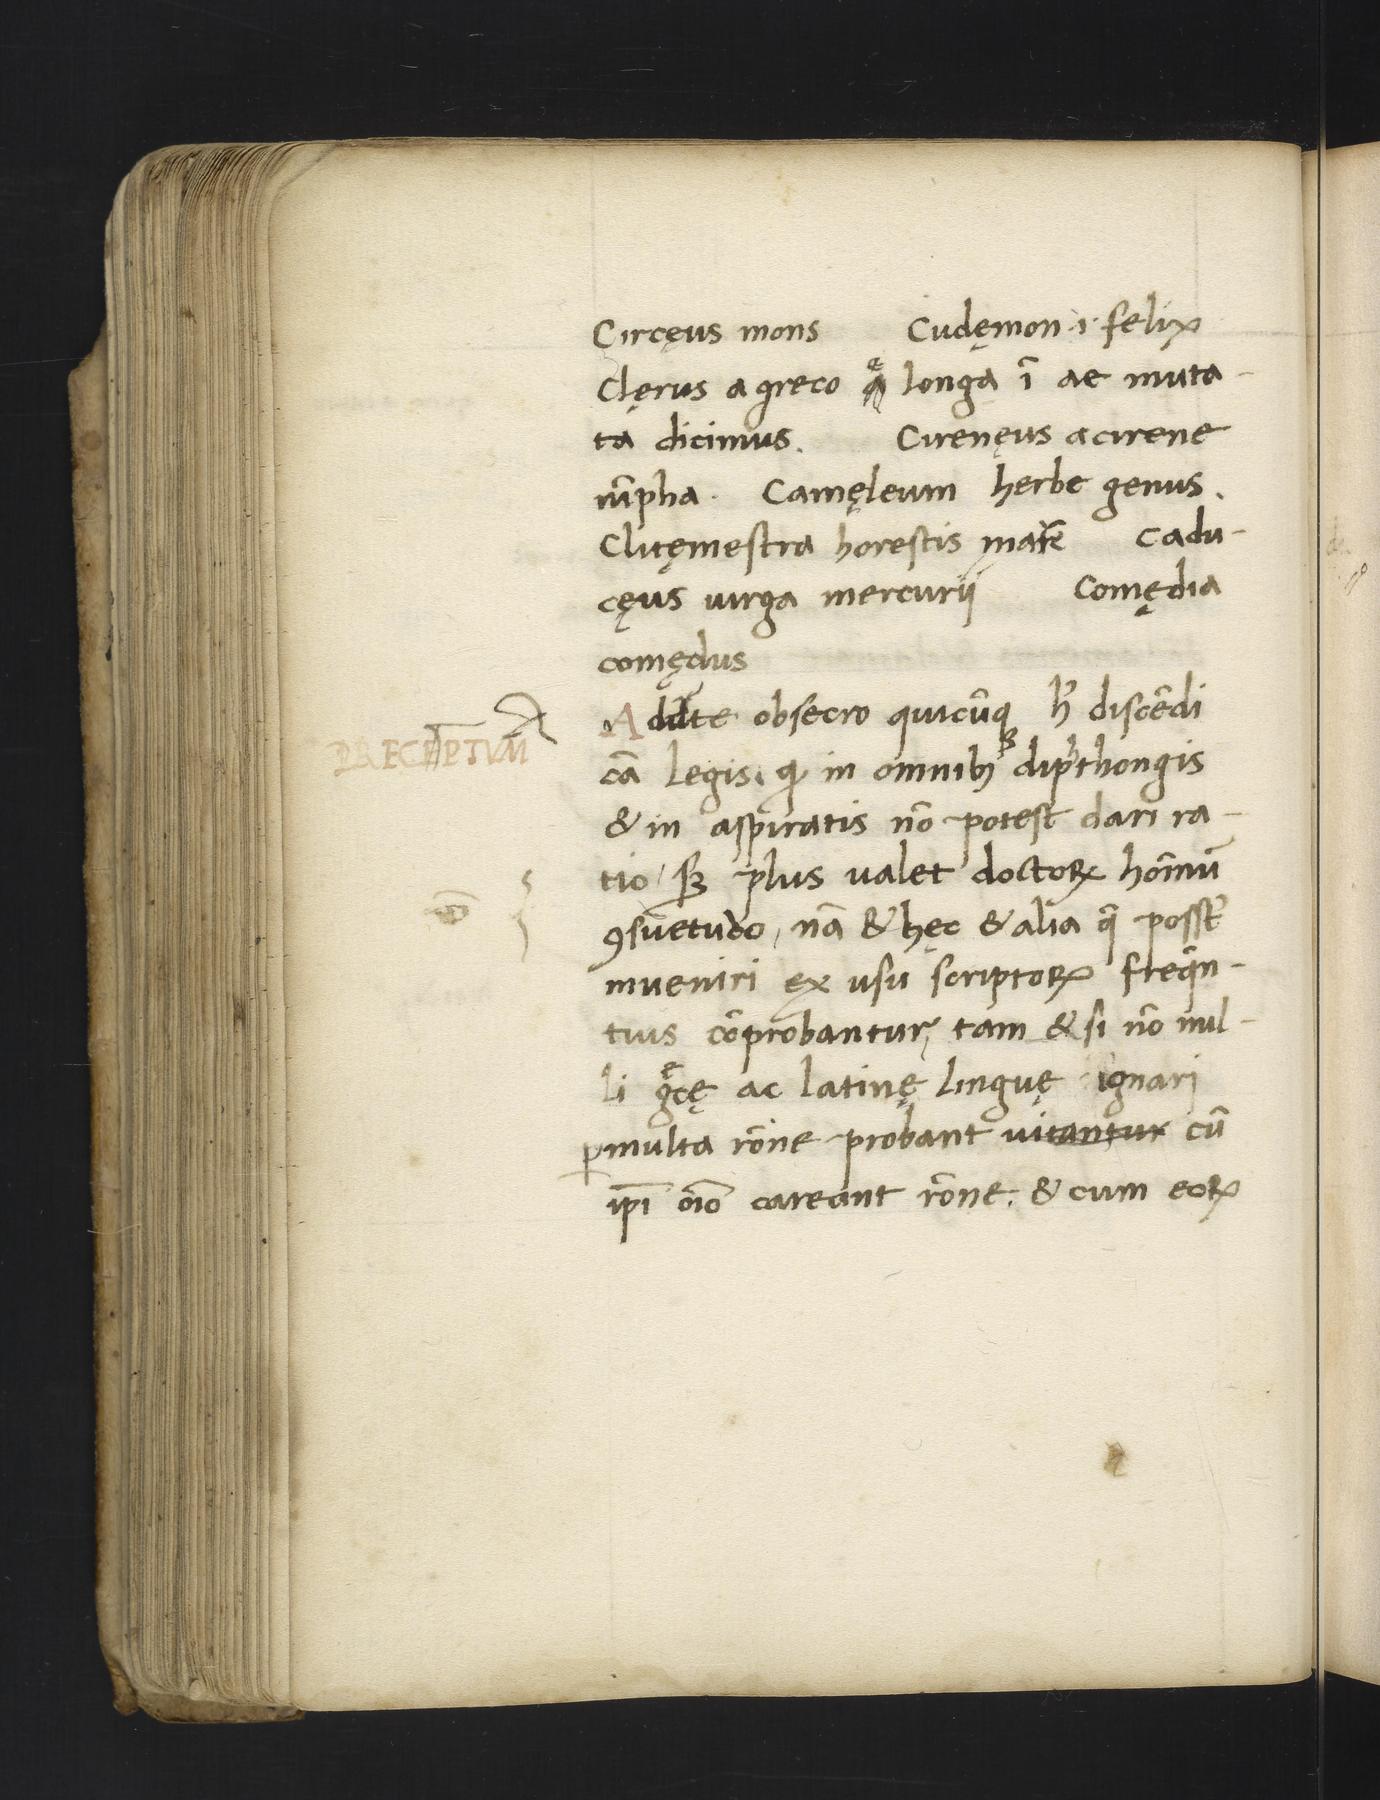 Circęus mons Cudęmon ·i· felix
Clęrus a greco longa ī ae muta-
ta dicimus. Cirenęus a cirene
nīpha. Camęleum herbe genus.
Clitęmestra horestis Cadu-
cęus uirga mercurij Comędia
comędus
PRECEPTVM
obsecro quicūq h̄ discēdi
cā legis. in omnibꝫ dipthongis
& in aspiratis nō potest dari ra-
tio / sꝫ plus ualet doctoꝝ hoīnū
ꝯsuetudo, nā & hęc & alia q̄ possēt
inueniri ex usu scriptoꝝ freq̄n-
tius cōprobantur, tam & si nō nul-
li gͤcę ac latinę linguę ignari
ꝑmulta rōne probant uitantur cū
ip̄i oīo careant rōne. & cum eoꝝ